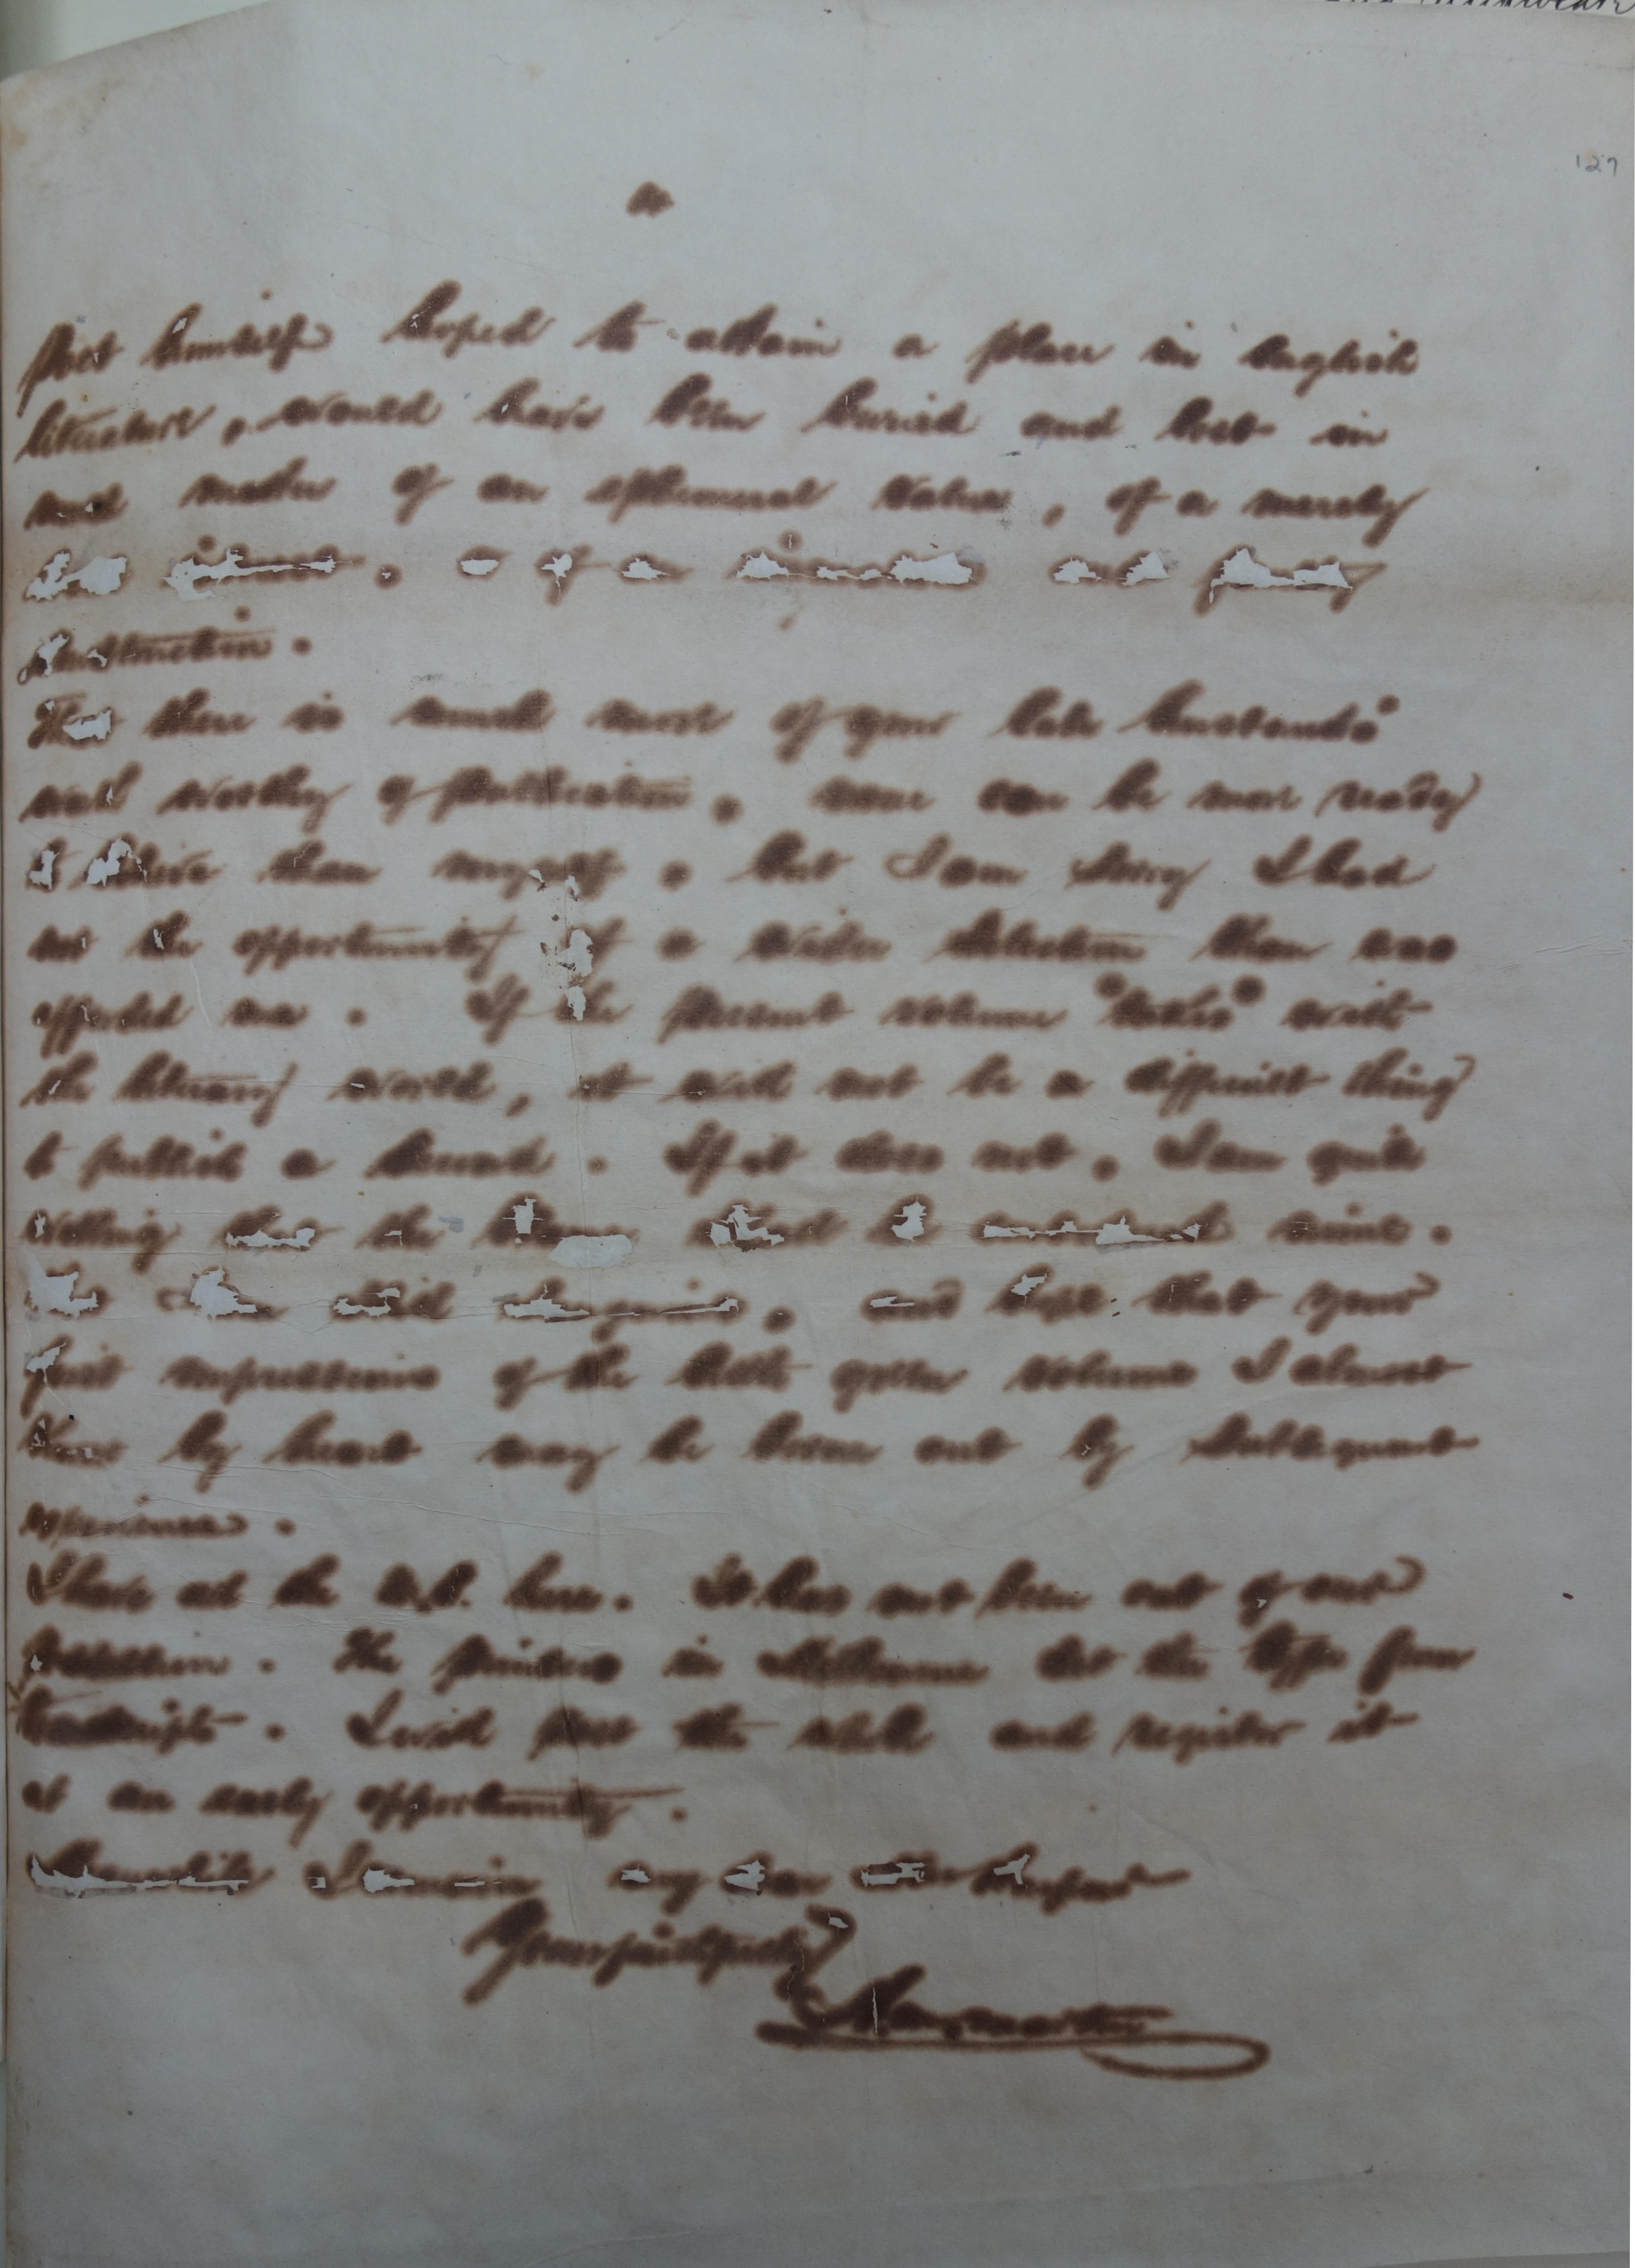 127
poet himself hoped to attain a place in English
literature, would have been buried and lost in
much matter of an ephemeral value, of a merely
local interest, or of a and faulty
construction.
That there is much more of your late husband's
well worthy of publication, none can be more ready
to believe than myself, but I am sorry I had
not the opportunity of a wider selection than was
afforded me. If the present volume "takes" with
the literary world, it will not be a difficult thing
to publish a second. If it does not, I am quite
willing that the blame shall be mine.
But I am still sanguine, and hope that your
first impressions of the little green volume I almost
know by heart may be borne out by subsequent
experience.
I have all the M.S. here. It has not been out of our
possession. The printers in Melbourne set the type from
transcript. I will post the whole and register it
at an early opportunity.
Meanwhile I remain my dear Mrs Harpur
Yours faithfully